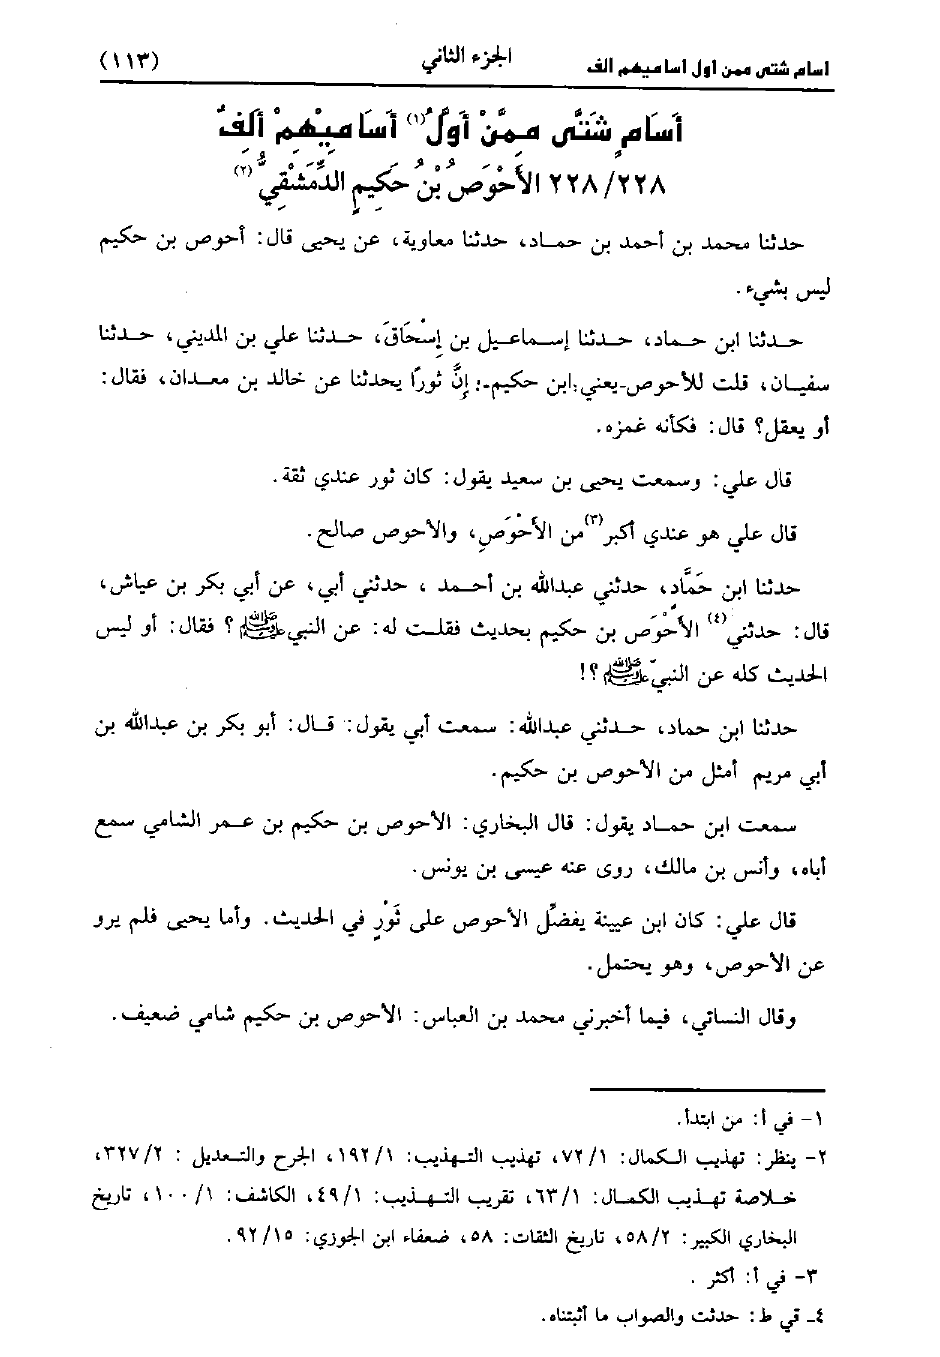 أسام شتى ممن أول أساميهم ألف الجزء الثاني (١١٣)
أَسَامٍ شَتَّى مِمَّنْ أَوَّلُ(١) أَسَامِيْهِمْ أَلِفٌ
٢٢٨/٢٢٨ الأَحْوَصُ بْنُ حَكِيمٍ الدِّمَشْقِيُّ(٢)
حدثنا محمد بن أحمد بن حماد، حدثنا معاوية، عن يحيى قال: أحوص بن حكيم
ليس بشيء.
حدثنا ابن حماد، حدثنا إسماعيل بن إِسْحَاقَ، حدثنا علي بن المديني، حدثنا
سفيان، قلت للأحوص-يعني: ابن حكيم-: إنَّ ثورًا يحدثنا عن خالد بن معدان، فقال:
أو يعقل؟ قال: فكأنه غمزه.
قال علي: وسمعت يحيى بن سعيد يقول: كان ثور عندي ثقة.
قال علي هو عندي أكبر(٣) من الأَحْوَصِ، والأحوص صالح.
حدثنا ابن حَمَّاد، حدثني عبدالله بن أحمد ، حدثني أبي، عن أبي بكر بن عياش،
قال: حدثني(٤) الأَحْوَص بن حكيم بحديث فقلت له: عن النبي ﷺ ؟ فقال: أو ليس
الحديث كله عن النبيّ ﷺ ؟!
حدثنا ابن حماد، حدثني عبدالله: سمعت أبي يقول: قال: أبو بكر بن عبدالله بن
أبي مريم أمثل من الأحوص بن حكيم.
سمعت ابن حماد يقول: قال البخاري: الأحوص بن حكيم بن عمر الشامي سمع
أباه، وأنس بن مالك، روى عنه عيسى بن يونس.
قال علي: كان ابن عيينة يفضِّل الأحوص على ثَوْرٍ في الحديث. وأما يحيى فلم يرو
عن الأحوص، وهو يحتمل.
وقال النسائي، فيما أخبرني محمد بن العباس: الأحوص بن حكيم شامي ضعيف.
١- في أ: من ابتدأ.
٢- ينظر: تهذيب الكمال: ٧٢/١، تهذيب التهذيب: ١٩٢/١، الجرح والتعديل : ٣٢٧/٢،
خلاصة تهذيب الكمال: ٦٣/١، تقريب التهذيب: ٤٩/١، الكاشف: ١٠٠/١، تاريخ
البخاري الكبير: ٥٨/٢، تاريخ الثقات: ٥٨، ضعفاء ابن الجوزي: ٩٢/١٥.
٣- في أ: أكثر .
٤- في ط: حدثت والصواب ما أثبتناه.